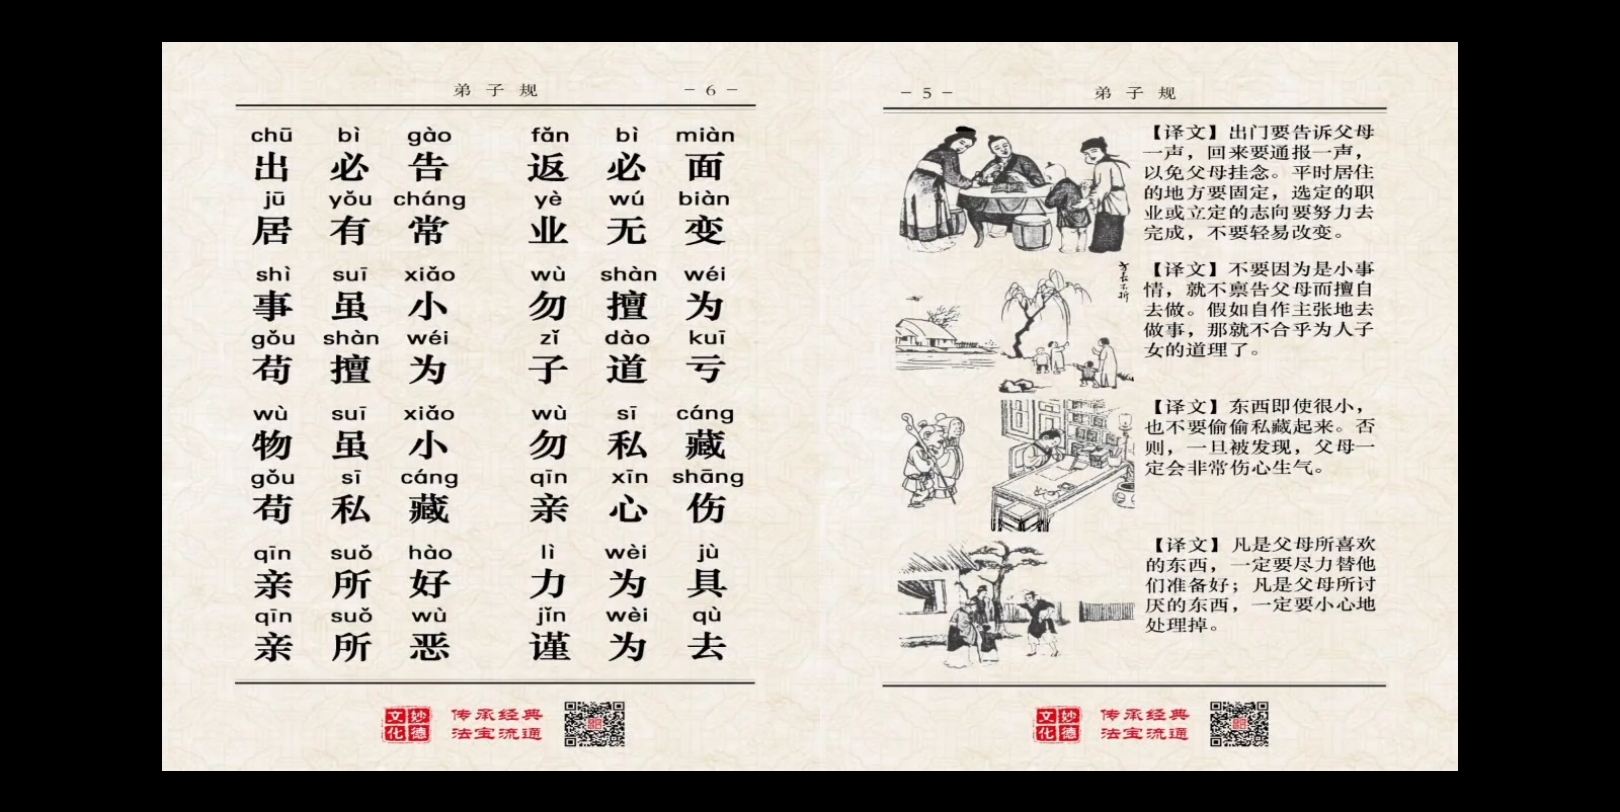 弟子规 -6-
chū bì gào fǎn bì miàn
出必告 返必面
jū yǒu cháng yè wú biàn
居有常 业无变
shì suī xiǎo wù shàn wéi
事虽小 勿擅为
gǒu shàn wéi zǐ dào kuī
苟擅为 子道亏
wù suī xiǎo wù sī cáng
物虽小 勿私藏
gǒu sī cáng qīn xīn shāng
苟私藏 亲心伤
qīn suǒ hào lì wèi jù
亲所好 力为具
qīn suǒ wù jǐn wèi qù
亲所恶 谨为去
文妙
化德
传承经典
法宝流通
-5- 弟子规
【译文】出门要告诉父母
一声，回来要通报一声，
以免父母挂念。平时居住
的地方要固定，选定的职
业或立定的志向要努力去
完成，不要轻易改变。
方长不折
【译文】不要因为是小事
情，就不禀告父母而擅自
去做。假如自作主张地去
做事，那就不合乎为人子
女的道理了。
【译文】东西即使很小，
也不要偷偷私藏起来。否
则，一旦被发现，父母一
定会非常伤心生气。
【译文】凡是父母所喜欢
的东西，一定要尽力替他
们准备好；凡是父母所讨
厌的东西，一定要小心地
处理掉。
文妙
化德
传承经典
法宝流通